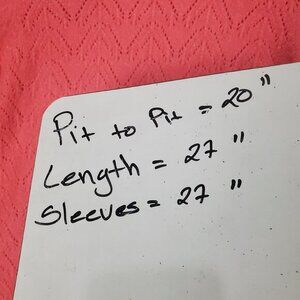 Pit to Pit = 20"
Length = 27"
Sleeves = 27"